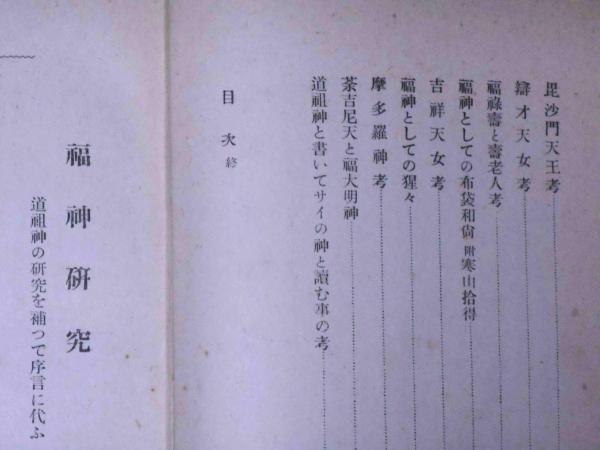 毘沙門天王考
辯才天女考
福祿壽と壽老人考
福神としての布袋和尙 附寒山拾得
吉祥天女考
福神としての猩々
摩多羅神考
荼吉尼天と福大明神
道祖神と書いてサイの神と讀む事の考
目次 終
福神硏究
道祖神の硏究を補つて序言に代ふ